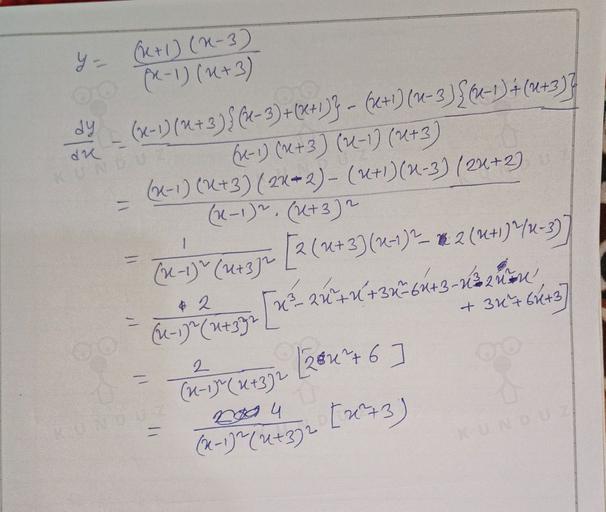 y = (x+1)(x-3) / (x-1)(x+3)
dy/dx = (x-1)(x+3){(x-3)+(x+1)} - (x+1)(x-3){(x-1)+(x+3)} / (x-1)(x+3)(x-1)(x+3)
= (x-1)(x+3)(2x-2) - (x+1)(x-3)(2x+2) / (x-1)²·(x+3)²
= 1 / (x-1)²(x+3)² [2(x+3)(x-1)² - 2(x+1)²(x-3)]
= 2 / (x-1)²(x+3)² [x³-2x²+x+3x²-6x+3-x³-2x²-x
+ 3x²+6x+3]
= 2 / (x-1)²(x+3)² [2x²+6]
= 4 / (x-1)²(x+3)² [x²+3)
KUNDUZ
KUNDUZ
KUNDUZ